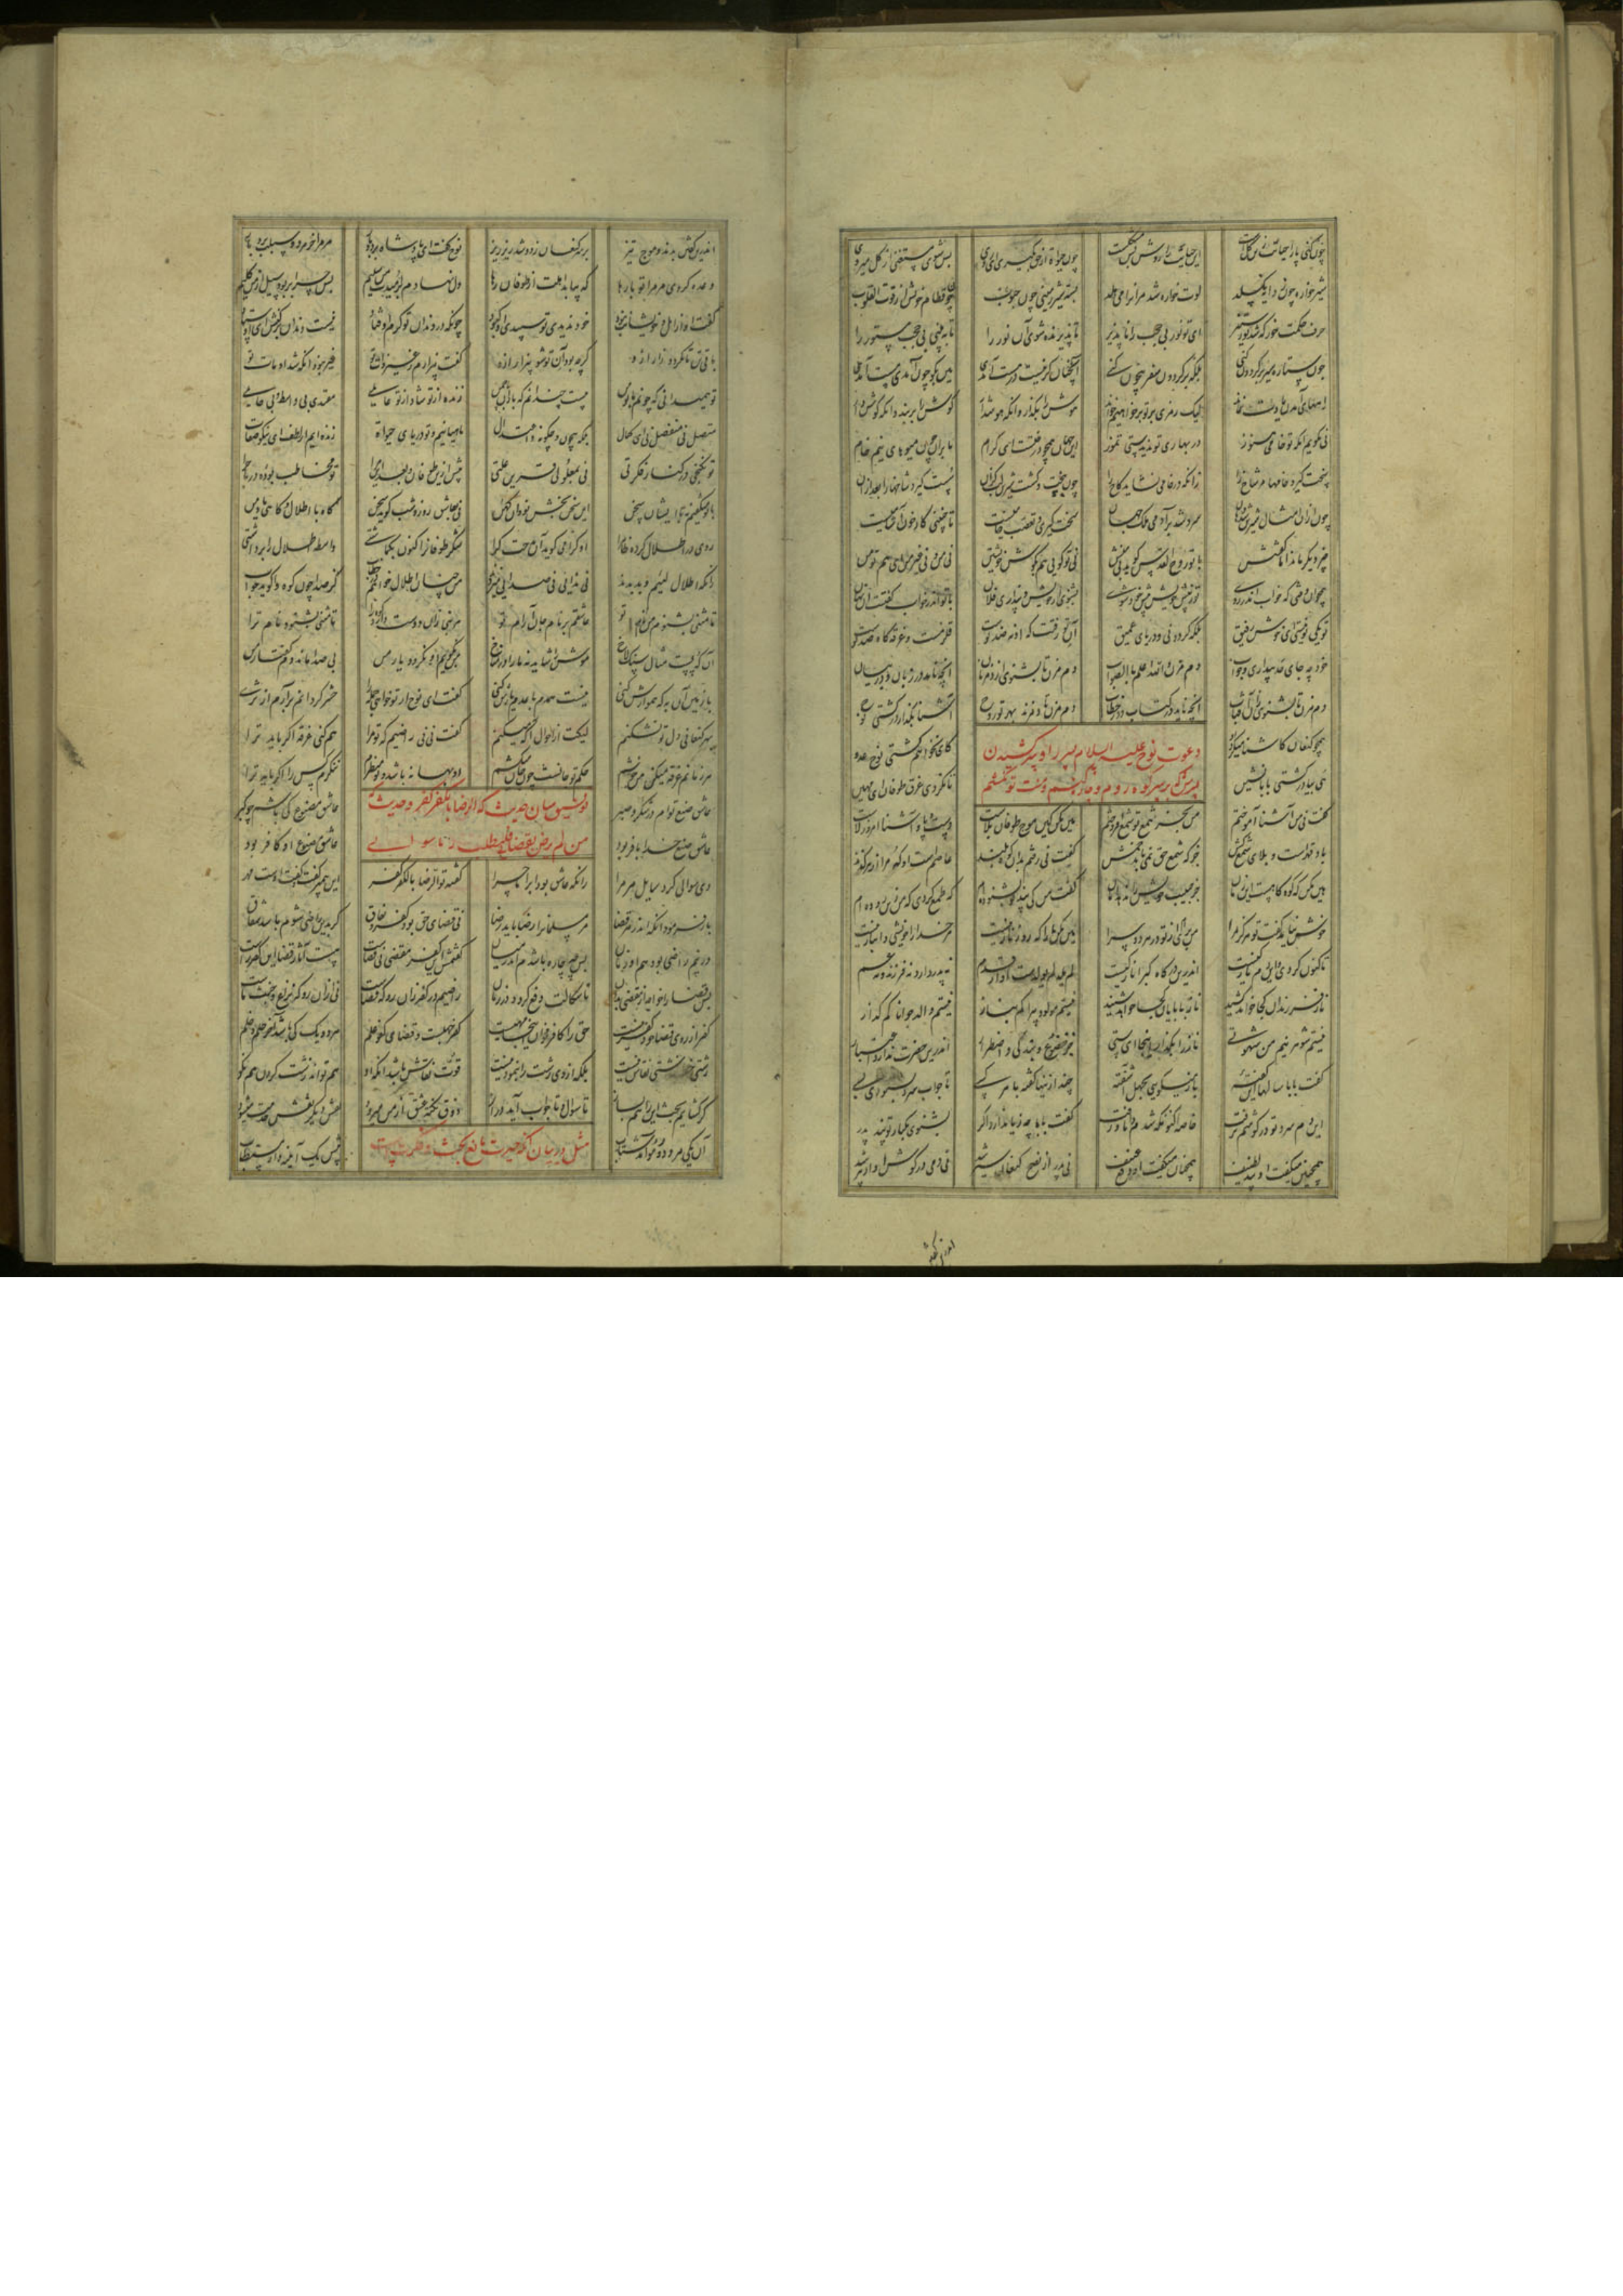 چون کنی پا را حیاتت زین گلست این حیاتت را روش بس مشکلست چون حیوة از حق بگیری ای روی پس شوی مستغنی از گل میروی
شیرخواره چون ز دایه بگسلد لوت خواره شد مر او را می هلد بسته شیر زمینی چون حبوب جو فطام خویش از قوت القلوب
حرف حکمت خور که شد نور ستیر ای تو نور بی حجب را ناپذیر تا پذیرنده شوی آن نور را تا ببینی بی حجب مستور را
چون ستاره سیر بر گردون کنی بلکه بر گردون سفر بیچون کنی آنچنان کز نیست در هست آمدی هین بگو چون آمدی مست آمدی
راههای آمدن یادت نماند لیک رمزی بر تو بر خواهیم خواند هوش را بگذار وانگه هوش دار گوش را بربند وانگه گوش دار
نی نگویم زانکه تو خامی هنوز در بهاری تو ندیدستی تموز این جهان همچو درختست ای کرام ما برو چون میوهای نیم خام
سخت گیرد خامها مر شاخ را زانکه در خامی نشاید کاخ را چون بپخت و گشت شیرین لب گزان سست گیرد شاخها را بعد از آن
چون از آن اقبال شیرین شد دهان سرد شد بر آدمی ملک جهان سخت گیری و تعصب خامیست تا جنینی کار خون آشامیست
چیز دیگر ماند اما گفتنش با تو روح القدس گوید بی منش نی تو گویی هم بگوش خویشتن نی من و نی غیر من ای هم تو من
همچو آن وقتی که خواب اندر روی تو ز پیش خود به پیش خود شوی بشنوی از خویش و پنداری فلان با تو اندر خواب گفتست آن نهان
تو یکی تو نیستی ای خوش رفیق بلکه گردونی و دریای عمیق آن تو زفتت که آن نهصد توست قلزمست و غرقه گاه صد توست
خود چه جای حد بیداری و خواب دم مزن والله اعلم بالصواب دم مزن تا بشنوی از دم زنان آنچه نامد در زبان و در بیان
دم مزن تا بشنوی زان آفتاب آنچه ناید در کتاب و در خطاب دم مزن تا دم زند بهر تو روح آشنا بگذار در کشتی نوح
همچو کنعان کاشنا میکرد او که نخواهم کشتی نوح عدو
دعوت نوح علیه السلام پسر را و سر کشیدن
پسرش که بر سر کوه روم و چاره کنم و منت تو نکشم
هی بیا در کشتی بابا نشین تا نگردی غرق طوفان ای مهین
گفت نی من آشنا آموختم من بجز شمع تو شمع افروختم هین مکن کین موج طوفان بلاست دست و پا و آشنا امروز لاست
باد قهرست و بلای شمع کش جز که شمع حق نمی پاید خمش گفت نی رفتم بران کوه بلند عاصمست او که مرا از هر گزند
هین مکن که کوه کاهست این زمان جز حبیب خویش را ندهد امان گفت من کی پند تو بشنوده ام که طمع کردی که من زین دوده ام
خوش نیامد گفت تو هرگز مرا من بری ام از تو در هر دو سرا هین مکن بابا که روز ناز نیست مر خدا را خویشی و انباز نیست
تا کنون کردی و این دم نازکیست اندرین درگاه گیرا ناز کیست لم یلد لم یولدست او از قدم نه پدر دارد نه فرزند و نه عم
ناز فرزندان کجا خواهد کشید ناز بابایان کجا خواهد شنید نیستم مولود پیرا کم بناز نیستم والد جوانا کم گراز
نیستم شوهر نیم من شهوتی ناز را بگذار اینجا ای ستی جز خضوع و بندگی و اضطرار اندرین حضرت ندارد اعتبار
گفت بابا سالها این گفته باز میگویی بجهل آشفته چند ازینها گفته با هر کسی تا جواب سرد بشنودی بسی
این دم سرد تو در گوشم نرفت خاصه اکنون که شدم دانا و زفت گفت بابا چه زیان دارد اگر بشنوی یکبار تو پند پدر
همچنین میگفت او پند لطیف همچنان میگفت او دفع عنیف نی پدر از نصح کنعان سیر شد نی دمی در گوش آن ادبیر شد
اندرین گفتن
اندرین گفتن بدند و موج تیز بر سر کنعان زد و شد ریز ریز نوح گفت ای پادشاه بردبار مر مرا خر مرد و سیلت برد بار
وعده کردی مر مرا تو بارها که بیابد اهلت از طوفان رها دل نهادم بر امیدت من سلیم پس چرا بربود سیل از من گلیم
گفت او از اهل و خویشانت نبود خود ندیدی تو سپیدی او کبود چونکه در دندان تو کرم اوفتاد نیست دندان بر کنش ای اوستاد
تا که باقی تن نگردد زار ازو گرچه بود آن تو شو بیزار ازو گفت بیزارم ز غیر ذات تو غیر نبود آنکه شد او مات تو
تو همی دانی که چونم با تو من بیست چندانم که با باران چمن زنده از تو شاد از تو عایلی مغتذی بی واسطه بی حایلی
متصل نی منفصل نی ای کمال بلکه بیچون و چگونه و اعتدال ماهیانیم و تو دریای حیوة زنده ایم از لطفت ای نیکو صفات
تو نگنجی در کنار فکرتی نی بمعلولی قرین علتی پیش ازین طوفان و بعد این مرا تو مخاطب بوده در ماجرا
با تو میگفتم نه با ایشان سخن ای سخن بخش نو و آن کهن نی که عاشق روز و شب گوید سخن گاه با اطلال و گاهی با دمن
روی در اطلال کرده ظاهرا او کرا می گوید آن مدحت کرا شکر طوفان را کنون بگماشتی واسطه اطلال را برداشتی
زانکه اطلال لئیم و بد بدند نی ندایی نی صدایی می زدند من چنان اطلال خواهم در خطاب کز صدا چون کوه واگوید جواب
تا مثنی بشنوم من نام تو عاشقم بر نام جان آرام تو هر نبی زان دوست دارد کوه را تا مثنی بشنود نام ترا
آن که پست مثال سنگلاخ موش را شاید نه ما را در مناخ من بگویم او نگردد یار من بی صدا ماند دم گفتار من
با زمین آن به که هموارش کنی نیست همدم با عدم یارش کنی گفت ای نوح ار تو خواهی جمله را حشر گردانم برآرم از ثری
بهر کنعانی دل تو نشکنم لیکت از احوال آگه میکنم گفت نی نی راضیم که تو مرا هم کنی غرقه اگر باید ترا
هر زمانم غرقه میکن من خوشم حکم تو جانست چون جان میکشم ننگرم کس را و گر هم بنگرم او بهانه باشد و تو منظرم
عاشق صنع توام در شکر و صبر عاشق مصنوع کی باشم چو گبر
توفیق میان حدیث که الرضا بالکفر کفر و حدیث
من لم یرض بقضائی فلیطلب ربا سوائی
عاشق صنع خدا با فر بود عاشق مصنوع او کافر بود
دی سوالی کرد سایل مر مرا زانکه عاشق بود او بر ماجرا گفت نکته الرضا بالکفر کفر این پیمبر گفت و گفت اوست مهر
باز فرمود او که اندر هر قضا مر مسلمان را رضا باید رضا نی قضای حق بود کفر و نفاق گر بدین راضی شوم باشد شقاق
ور نیم راضی بود هم آن زیان پس چه چاره باشدم اندر میان گفتمش این کفر مقضی نی قضاست هست آثار قضا این کفر راست
پس قضا را خواجه از مقضی بدان تا شکالت دفع گردد در زمان راضیم در کفر زان رو که قضاست نی ازان رو که نزاع و خبث ماست
کفر از روی قضا خود کفر نیست حق را کافر مخوان اینجا مه ایست کفر جهلست و قضای کفر علم هر دو یک کی باشد آخر حلم و خلم
زشتی خط زشتی نقاش نیست بلکه از وی زشت را بنمودنیست قوت نقاش باشد آنکه او هم تواند زشت کردن هم نکو
گر گشایم بحث این را من بساز تا سوال و تا جواب آید دراز ذوق نکته عشق از من میرود نقش خدمت نقش دیگر میشود
مثل در بیان آنکه حیرت مانع بحث و فکرتست
آن یکی مرد دو مو آمد شتاب پیش یک آیینه دار مستطاب